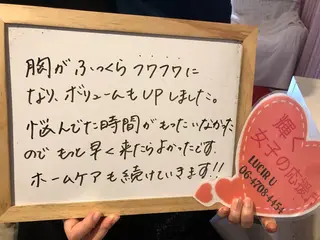 胸がふっくらフワフワに
なり、ボリュームもUPしました。
悩んでた時間がもったいなかった
のでもっと早く来たらよかったです。
ホームケアも続けていきます!!
輝く
女子の応援
LUCIR U
06-4708-4454